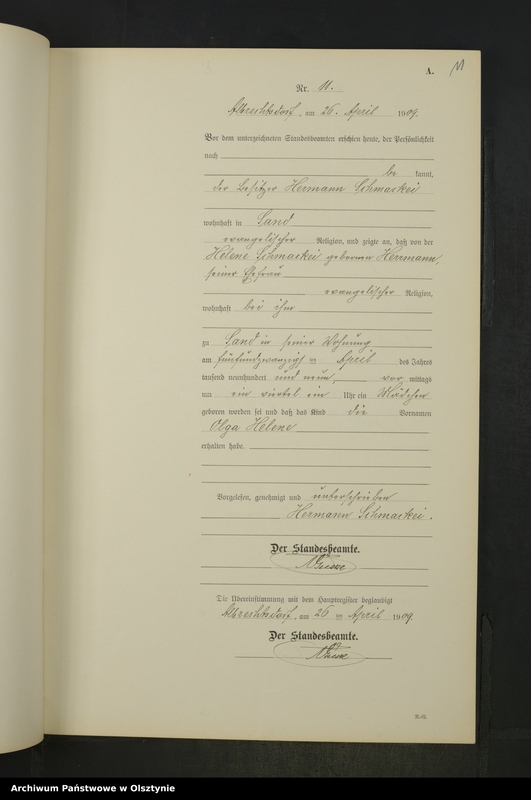 A.
11
Nr. 11.
Albrechtsdorf, am 26. April 1909.
Vor dem unterzeichneten Standesbeamten erschien heute, der Persönlichkeit
nach
be kannt,
der Besitzer Hermann Schmackei
wohnhaft in Sand
evangelischer Religion, und zeigte an, daß von der
Helene Schmackei geborenen Herrmann,
seiner Ehefrau
evangelischer Religion,
wohnhaft bei ihm
zu Sand in seiner Wohnung
am fünfundzwanzigsten April des Jahres
tausend neunhundert und neun, vor mittags
um ein viertel ein Uhr ein Mädchen
geboren worden sei und daß das Kind die Vornamen
Olga Helene
erhalten habe.
Vorgelesen, genehmigt und unterschrieben
Hermann Schmackei.
Der Standesbeamte.
Die Übereinstimmung mit dem Hauptregister beglaubigt
Albrechtsdorf, am 26 ten April 1909.
Der Standesbeamte.
Archiwum Państwowe w Olsztynie